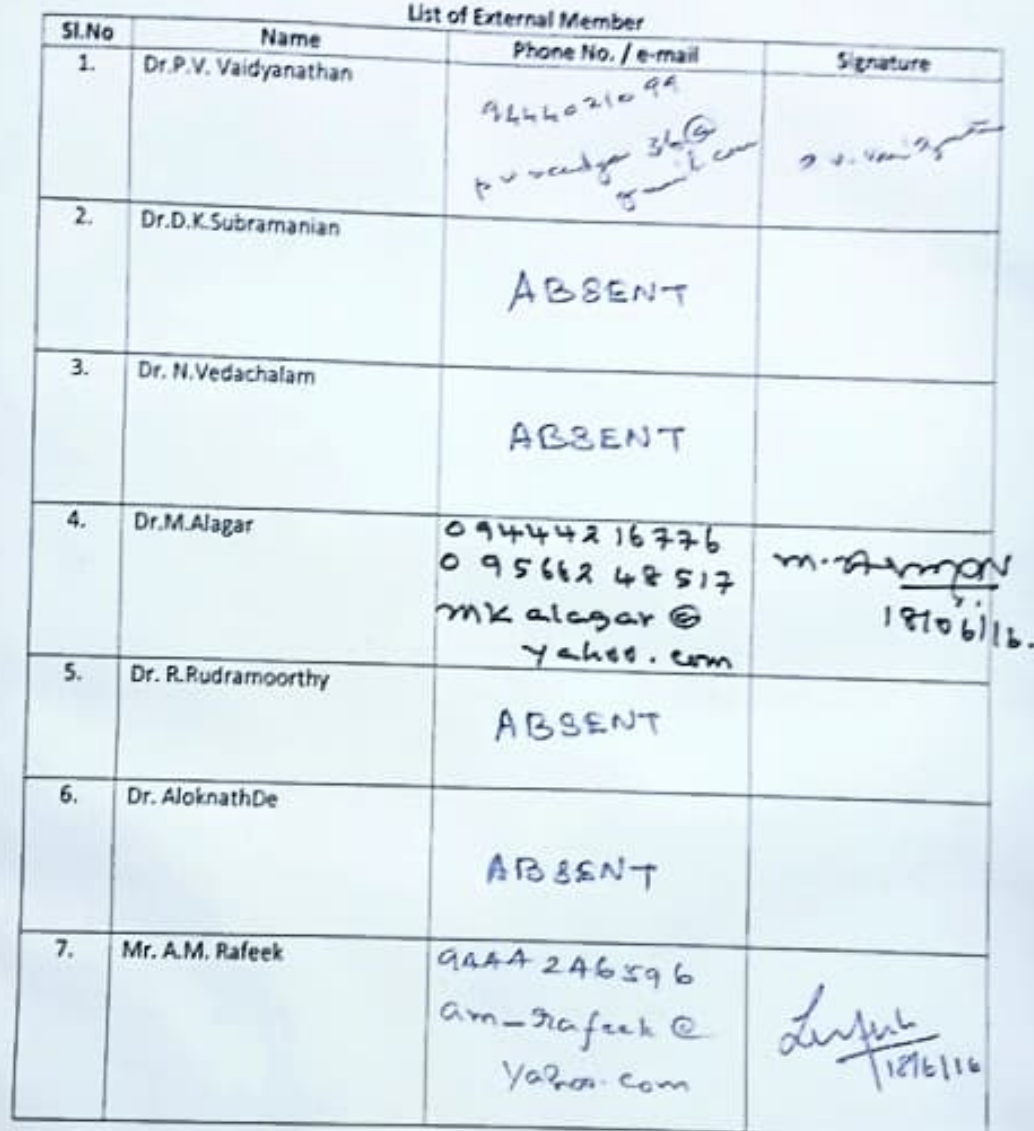 List of External Member
Sl.No Name Phone No. / e-mail Signature
1. Dr.P.V. Vaidyanathan
9444021099
36@
gmail com
2. Dr.D.K.Subramanian
ABSENT
3. Dr. N.Vedachalam
ABSENT
4. Dr.M.Alagar
09444216776
0 95662 48517
mkalagar@
yahoo.com
18/06/16.
5. Dr. R.Rudramoorthy
ABSENT
6. Dr. AloknathDe
ABSENT
7. Mr. A.M. Rafeek
9444246596
am_rafeek@
yahoo.com
18/6/16